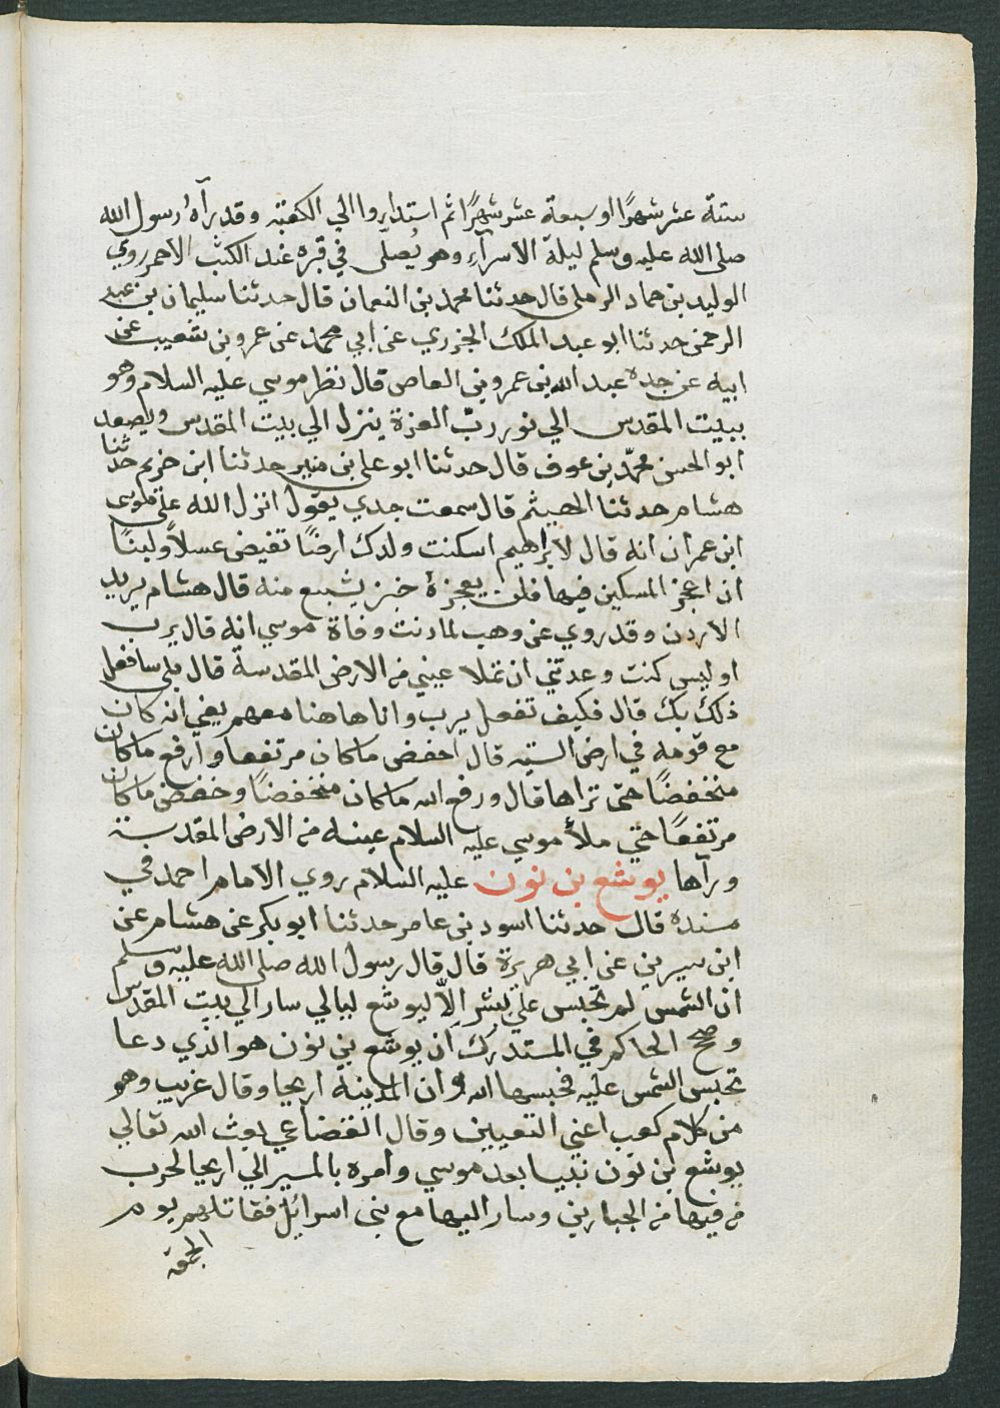 ستة عشر شهرًا او سبعة عشر شهرًا ثم استداروا الي الكعبة وقد رآه رسول الله
صلى الله عليه وسلم ليلة الاسراء وهو يُصلّى في قبره عند الكثب الاحمر روي
الوليد بن حماد الرملى قال حدثنا محمد بن النعمان قال حدثنا سليمان بن عبد
الرحمن حدثنا ابو عبد الملك الجزري عن ابي محمد عن عمرو بن شعيب عن
ابيه عن جده عبد الله بن عمرو بن العاص قال نظر موسي عليه السلام وهو
ببيت المقدس الي نور رب العزة ينزل الي بيت المقدس ويصعد
ابو الحسن محمّد بن عوف قال حدثنا ابو على بن منير حدثنا ابن خريم حدثنا
هشام حدثنا الهيثم قال سمعت جدي يقول انزل الله على موسى
ابن عمران انه قال لابراهيم اسكنت ولدك ارضًا تفيض عسلاً ولبنًا
ان اعجز المسكين فيها فلن يعجزه خبز يشبع منه قال هشام يريد
الاردن وقد روي عن وهب لما دنت وفاة موسي انه قال يرب
او ليس كنت وعدتني ان تملا عيني من الارض المقدسة قال بلى سافعل
ذلك بك قال فكيف تفعل يرب وانا هاهنا معهم يعني انه كان
مع قومه في ارض التيه قال اخفض ما كان مرتفعا وارفع ما كان
منخفضًا حتى تراها قال ورفع الله ما كان منخفضًا وخفض ما كان
مرتفعًا حتي ملأ موسي عليه السلام عينه من الارض المقدسة
ورآها يوشع بن نون عليه السلام روي الامام احمد في
مسنده قال حدثنا اسود بن عامر حدثنا ابو بكر عن هشام عن
ابن سيرين عن ابي هريرة قال قال رسول الله صلى الله عليه وسلم
ان الشمس لم تحبس علي بشر الاّ ليوشع ليالي سار الي بيت المقدس
وصحح الحاكم في المستدرك ان يوشع بن نون هو الذي دعا
تحبس الشمس عليه فحبسها الله وان المدينة اريحا وقال غريب وهو
من كلام كعب اعني التعيين وقال القضاعي بعث الله تعالي
يوشع بن نون نبيا بعد موسي وامره بالمسير الي اريحا لحرب
من فيها من الجبارين وسار اليها مع بنى اسرائيل فقاتلهم يوم
الجمعة